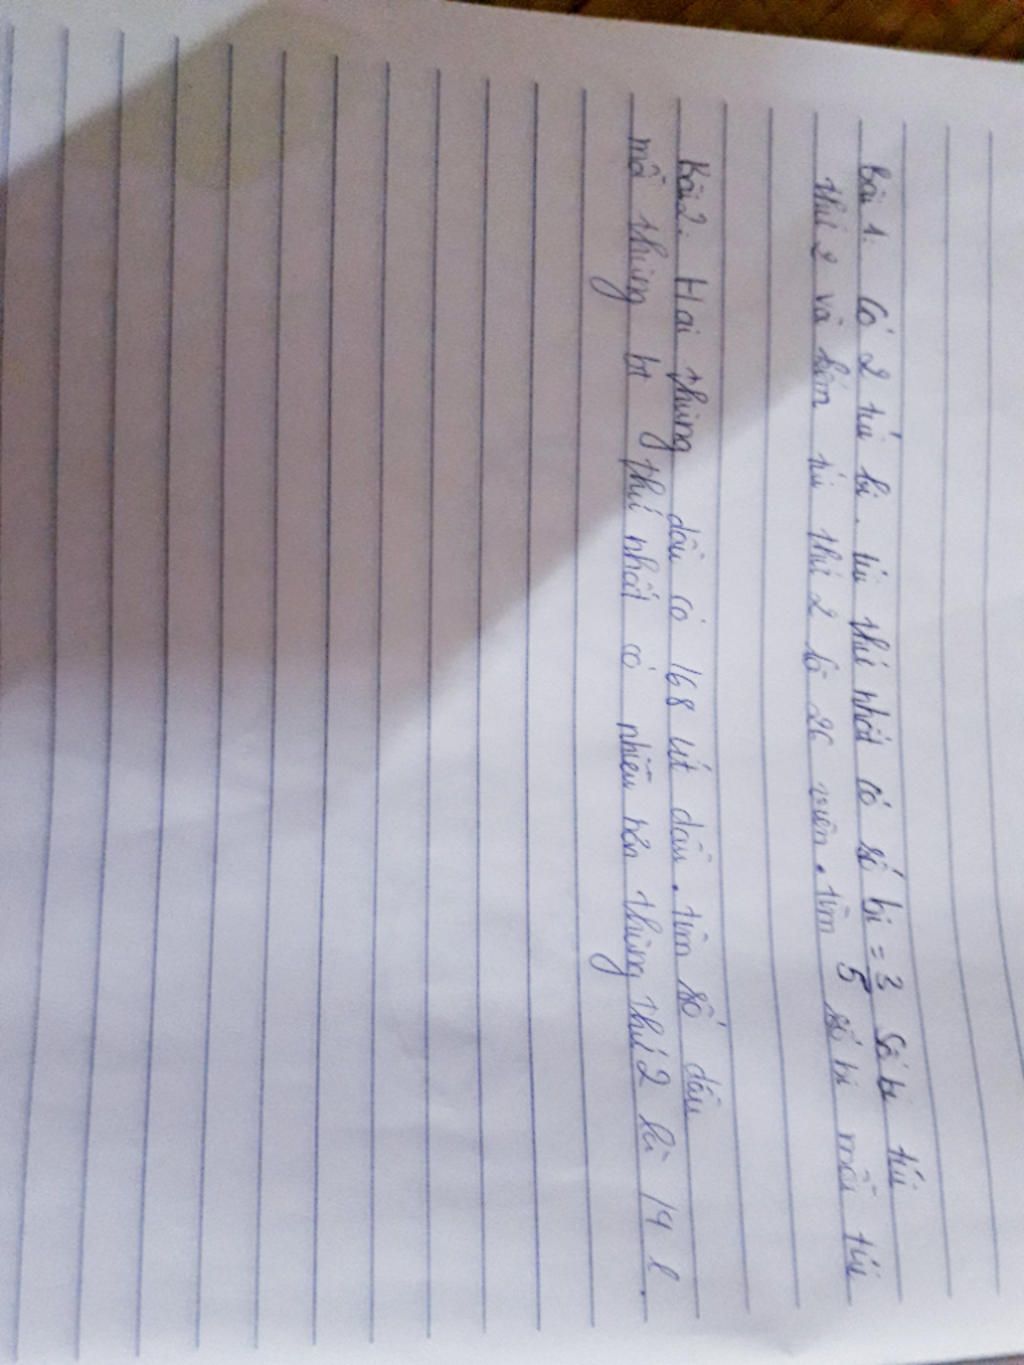 Bài 1. Có 2 túi bi. túi thứ nhất có số bi = 3/5 số bi túi
thứ 2 và kém túi thứ 2 là 26 viên. tìm số bi mỗi túi
Bài 2. Hai thùng dầu có 168 lít dầu. tìm số dầu
mỗi thùng bt thứ nhất có nhiều hơn thùng thứ 2 là 14 l.